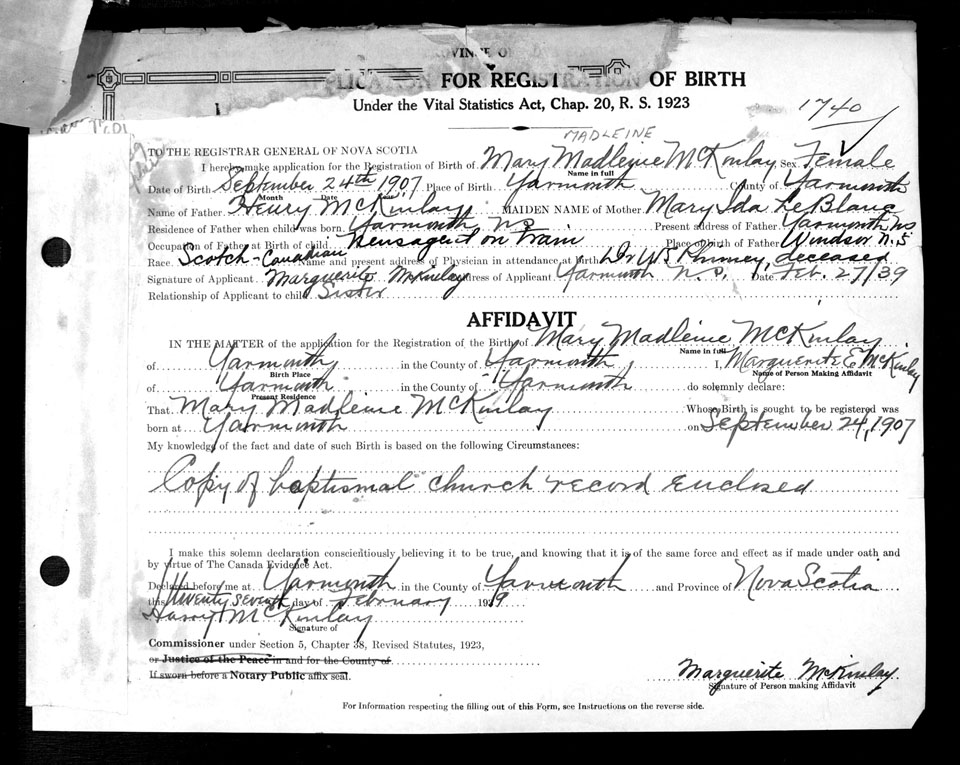 VINCE O
FOR REGISTRATION OF BIRTH
Under the Vital Statistics Act, Chap. 20, R. S. 1923
1740
MADLEINE
TO THE REGISTRAR GENERAL OF NOVA SCOTIA
I hereby make application for the Registration of Birth of Mary Madleine McKinlay Sex Female
Name in full
Date of Birth September 24th 1907 Place of Birth Yarmouth County of Yarmouth
Month Date Year
Name of Father Henry McKinlay MAIDEN NAME of Mother Mary Ida LeBlanc
Residence of Father when child was born Yarmouth NS Present address of Father Yarmouth NS
Occupation of Father at Birth of child Newsagent on Train Place of birth of Father Windsor N.S
Race Scotch-Canadian Name and present address of Physician in attendance at birth Dr WS Phinney, deceased
Signature of Applicant Marguerite McKinlay Address of Applicant Yarmouth N.S. Date Feb. 27/39
Relationship of Applicant to child Sister
AFFIDAVIT
IN THE MATTER of the application for the Registration of the Birth of Mary Madleine McKinlay
Name in full
of Yarmouth in the County of Yarmouth I, Marguerite E McKinlay
Birth Place Name of Person Making Affidavit
of Yarmouth in the County of Yarmouth do solemnly declare:
Present Residence
That Mary Madleine McKinlay Whose Birth is sought to be registered was
born at Yarmouth on September 24, 1907
My knowledge of the fact and date of such Birth is based on the following Circumstances:
Copy of baptismal church record enclosed
I make this solemn declaration conscientiously believing it to be true, and knowing that it is of the same force and effect as if made under oath and
by virtue of The Canada Evidence Act.
Declared before me at Yarmouth in the County of Yarmouth and Province of Nova Scotia
this twenty seventh day of February 1939
Harry McKinlay
Signature of
Commissioner under Section 5, Chapter 38, Revised Statutes, 1923,
or Justice of the Peace in and for the County of
If sworn before a Notary Public affix seal.
Marguerite McKinlay.
Signature of Person making Affidavit
For Information respecting the filling out of this Form, see Instructions on the reverse side.